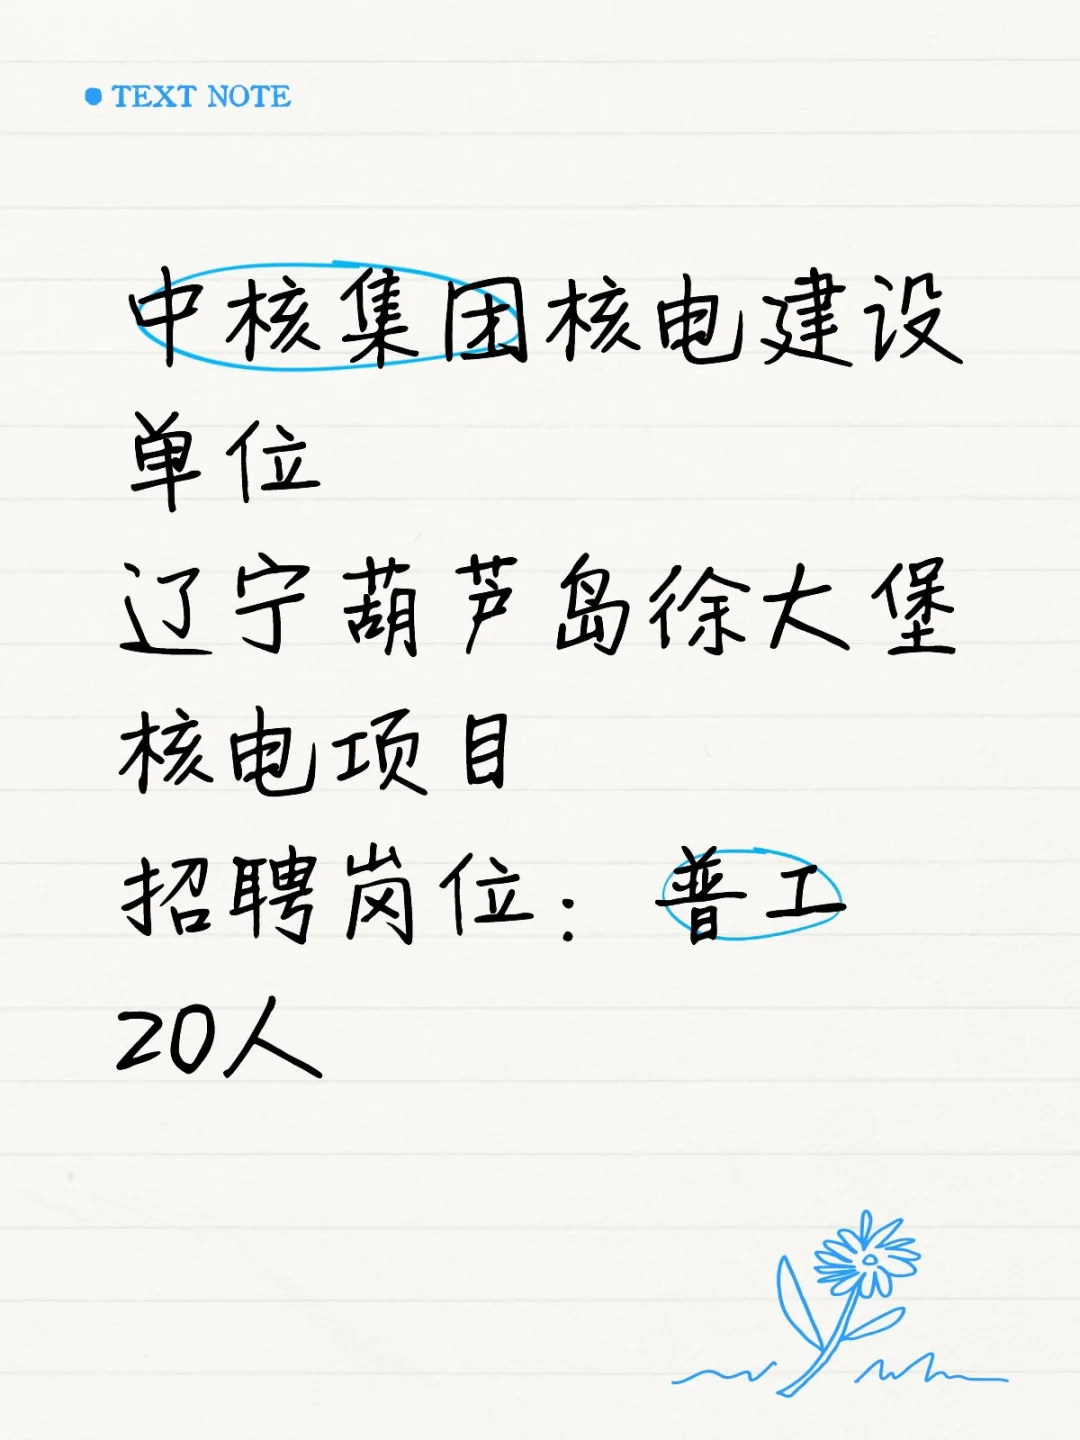 TEXT NOTE
中核集团核电建设
单位
辽宁葫芦岛徐大堡
核电项目
招聘岗位：普工
20人